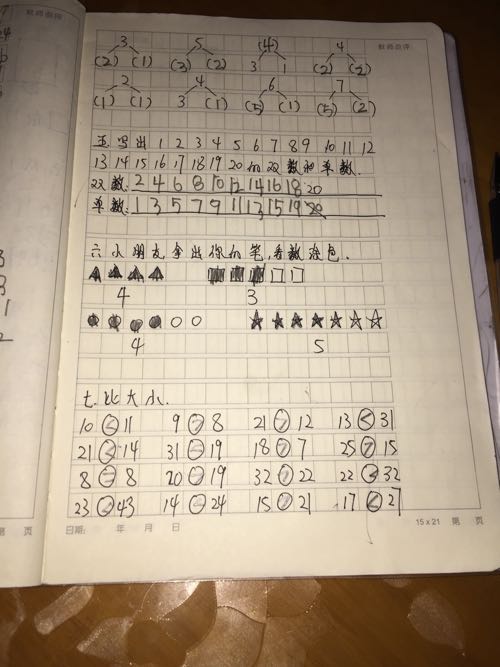 教师点评
3 5 (4) 4
(2) (1) (3) (2) 3 1 (2) (2)
2 4 6 7
(1) (1) 3 (1) (5) (1) (5) (2)
五.写出 1 2 3 4 5 6 7 8 9 10 11 12
13 14 15 16 17 18 19 20 的双数和单数.
双数:2 4 6 8 10 12 14 16 18 20
单数:1 3 5 7 9 11 13 15 19
六小朋友拿出你的笔,看数涂色.
4 3
4 5
七.比大小.
10 < 11 9 > 8 21 > 12 13 < 31
21 14 31 19 18 > 7 25 > 15
8 = 8 20 19 32 > 22 22 < 32
23 < 43 14 24 15 > 21 17 < 27
日期: 年 月 日 15 x 21 第 页
第 页